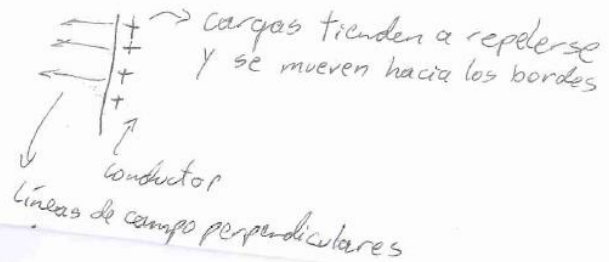 + → cargas tienden a repelerse
+ y se mueven hacia los bordes
+
+
conductor
líneas de campo perpendiculares